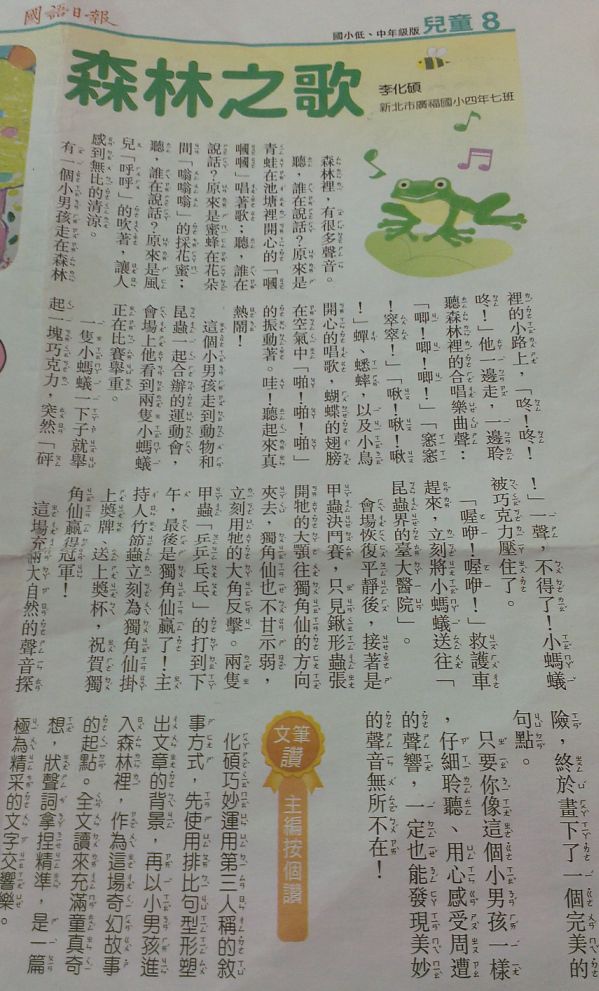 國語日報
國小低、中年級版 兒童 8
森林之歌
李化碩
新北市廣福國小四年七班
森林裡，有很多聲音。
聽，誰在說話？原來是
青蛙在池塘裡開心的「嘓
嘓嘓」唱著歌；聽，誰在
說話？原來是蜜蜂在花朵
間「嗡嗡嗡」的採花蜜；
聽，誰在說話？原來是風
兒「呼呼」的吹著，讓人
感到無比的清涼。
有一個小男孩走在森林
裡的小路上，「咚！咚！
咚！」他一邊走，一邊聆
聽森林裡的合唱樂曲聲：
「唧！唧！唧！」「窸窸
！窣窣！」「啾！啾！啾
！」蟬、蟋蟀，以及小鳥
開心的唱歌，蝴蝶的翅膀
在空氣中「啪！啪！啪」
的振動著。哇！聽起來真
熱鬧！
這個小男孩走到動物和
昆蟲一起合辦的運動會，
會場上他看到兩隻小螞蟻
正在比賽舉重。
一隻小螞蟻一下子就舉
起一塊巧克力，突然「砰
！」一聲，不得了！小螞蟻
被巧克力壓住了。
「喔咿！喔咿！」救護車
趕來，立刻將小螞蟻送往「
昆蟲界的臺大醫院」。
會場恢復平靜後，接著是
甲蟲決鬥賽，只見鍬形蟲張
開牠的大顎往獨角仙的方向
夾去，獨角仙也不甘示弱，
立刻用牠的大角反擊。兩隻
甲蟲「乒乒乓乓」的打到下
午，最後是獨角仙贏了！主
持人竹節蟲立刻為獨角仙掛
上獎牌，送上獎杯，祝賀獨
角仙贏得冠軍！
這場充滿大自然的聲音探
險，終於畫下了一個完美的
句點。
只要你像這個小男孩一樣
，仔細聆聽、用心感受周遭
的聲響，一定也能發現美妙
的聲音無所不在！
文筆讚
主編按個讚
化碩巧妙運用第三人稱的敘
事方式，先使用排比句型形塑
出文章的背景，再以小男孩進
入森林裡，作為這場奇幻故事
的起點。全文讀來充滿童真奇
想，狀聲詞拿捏精準，是一篇
極為精采的文字交響樂。